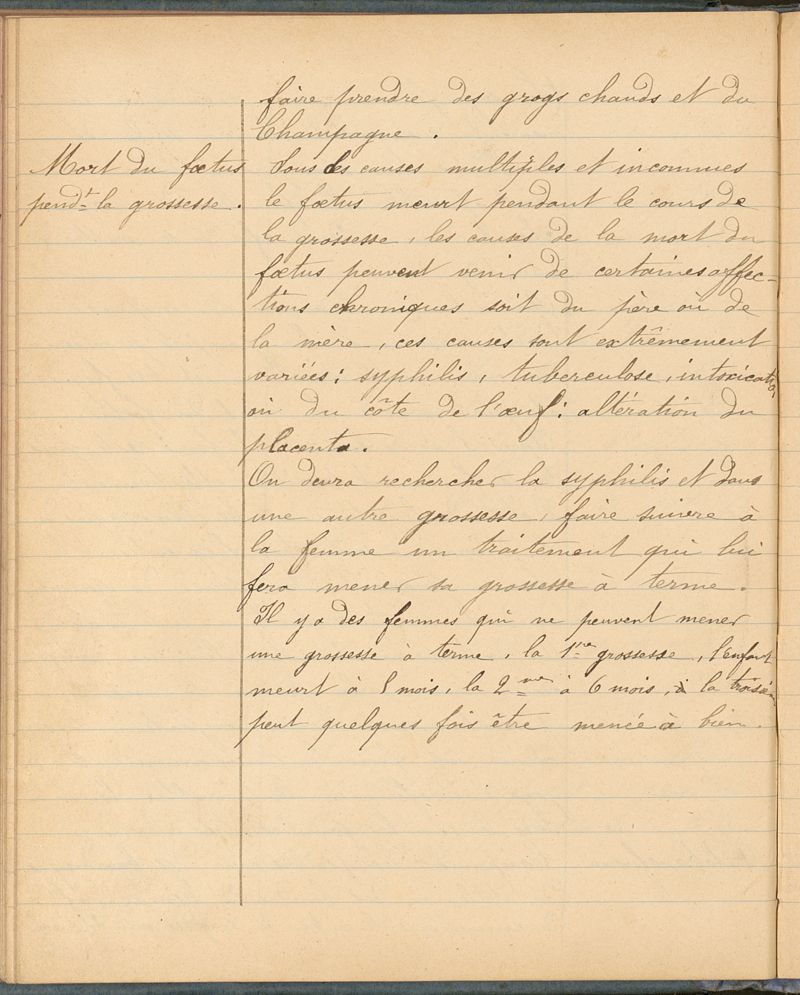 faire prendre des grogs chauds et du
Champagne.
Mort du fœtus
pendt la grossesse.
Sous des causes multiples et inconnues
le fœtus meurt pendant le cours de
la grossesse, les causes de la mort du
fœtus peuvent venir de certaines affec-
tions chroniques soit du père où de
la mère, ces causes sont extrêmement
variées: syphilis, tuberculose, intoxicatio
où du côte de l'œuf: altération du
placenta.
On devra rechercher la syphilis et dans
une autre grossesse, faire suivre à
la femme un traitement qui lui
fera mener sa grossesse à terme.
Il y a des femmes qui ne peuvent mener
une grossesse à terme, la 1ère grossesse, l'enfant
meurt à 5 mois, la 2me à 6 mois, à la troisiè
peut quelques fois être menée à bien.